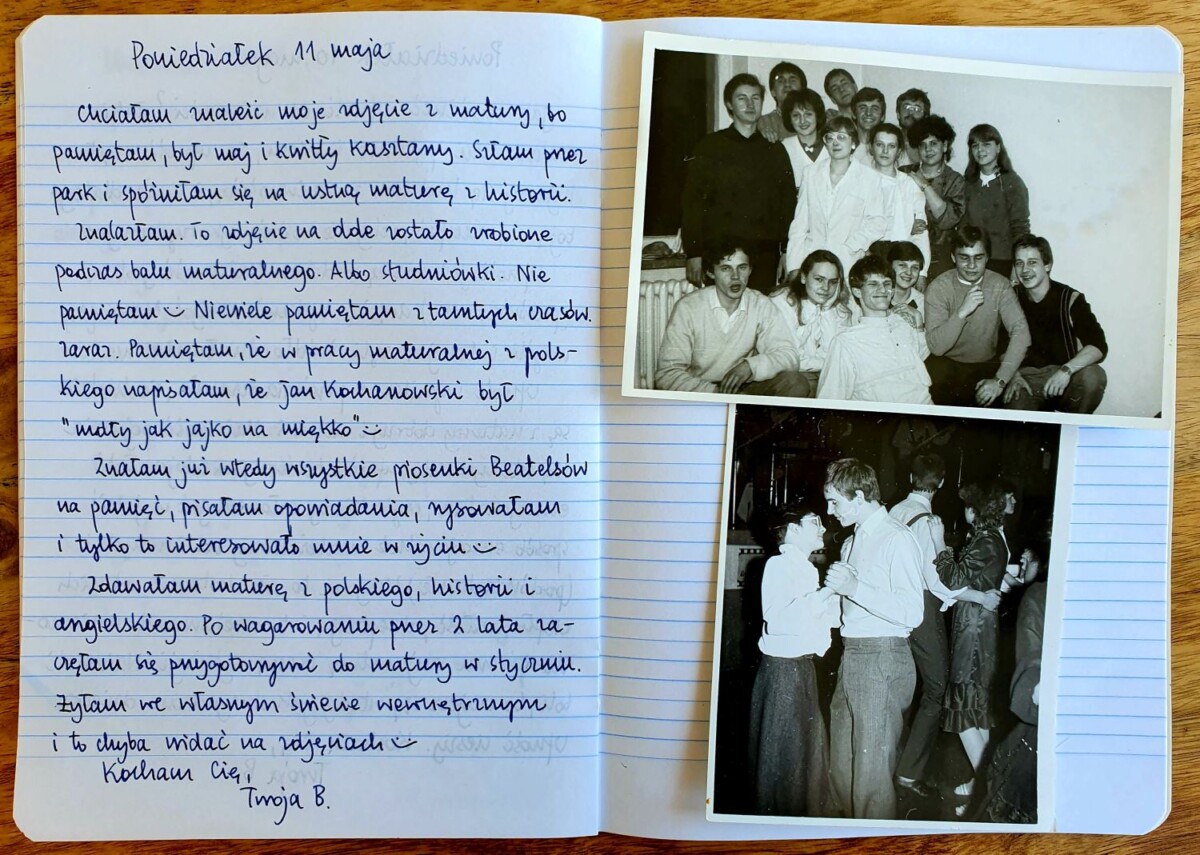 Poniedziałek 11 maja
Chciałam znaleźć moje zdjęcie z matury, bo
pamiętam, był maj i kwitły kasztany. Szłam przez
park i spóźniłam się na ustną maturę z historii.
Znalazłam. To zdjęcie na dole zostało zrobione
podczas balu maturalnego. Albo studniówki. Nie
pamiętam Niewiele pamiętam z tamtych czasów.
Zaraz. Pamiętam, że w pracy maturalnej z pols-
kiego napisałam, że Jan Kochanowski był
"mdły jak jajko na miękko"
Znałam już wtedy wszystkie piosenki Beatelsów
na pamięć, pisałam opowiadania, rysowałam
i tylko to interesowało mnie w życiu
Zdawałam maturę z polskiego, historii i
angielskiego. Po wagarowaniu przez 2 lata za-
częłam się przygotowywać do matury w styczniu.
Żyłam we własnym świecie wewnętrznym
i to chyba widać na zdjęciach
Kocham Cię,
Twoja B.